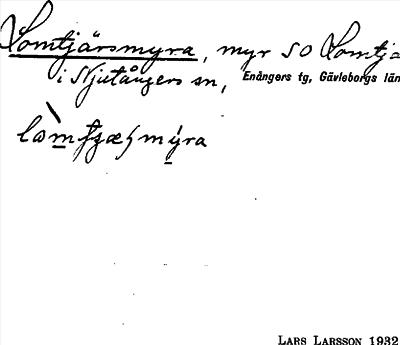 Lomtjärsmyra, myr SO Lomtjä
i Njutångers sn, Enångers tg, Gävleborgs län
LARS LARSSON 1932